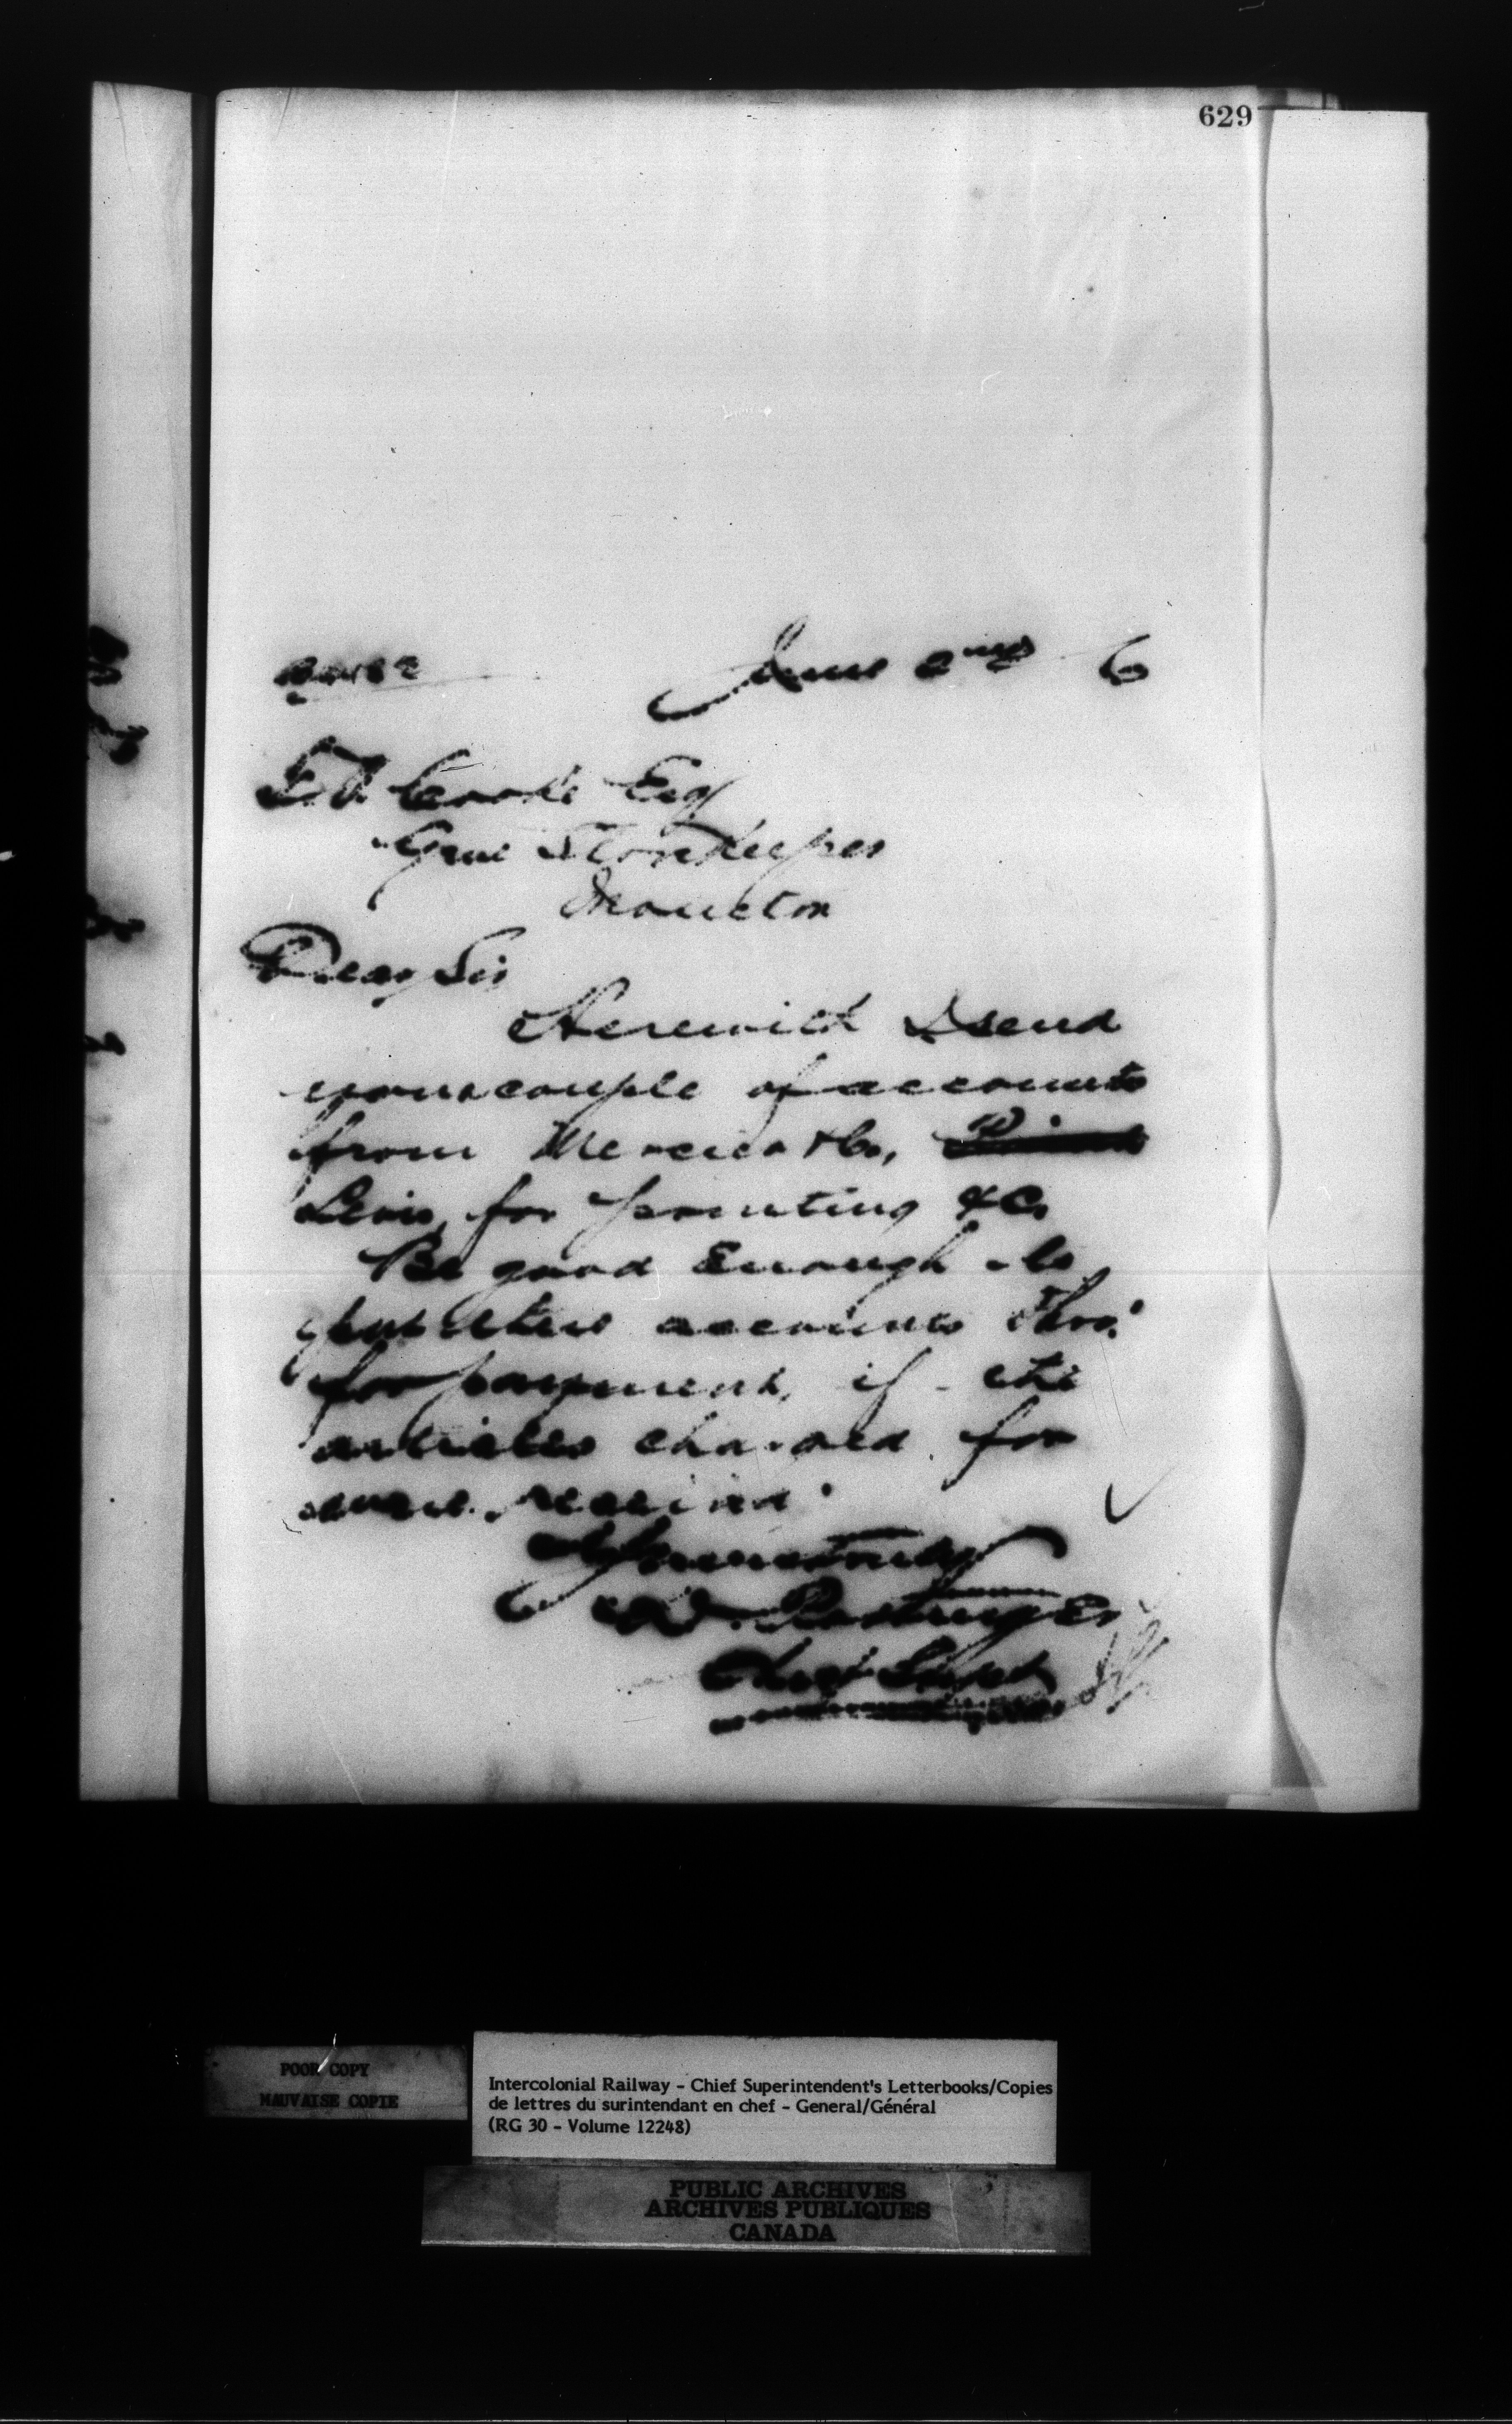 629
June 2nd 6
T. V. Cooke Esq
Genl Storekeeper
Moncton
Dear Sir
Herewith I send
you a couple of accounts
from Mercier & Co,
Levis, for printing &c.
Be good enough to
put these accounts thro'
for payment, if the
articles charged for
were received.
Yours truly
D. Pottinger
Chief Supt
POOR COPY
MAUVAISE COPIE
Intercolonial Railway - Chief Superintendent's Letterbooks/Copies
de lettres du surintendant en chef - General/Général
(RG 30 - Volume 12248)
PUBLIC ARCHIVES
ARCHIVES PUBLIQUES
CANADA